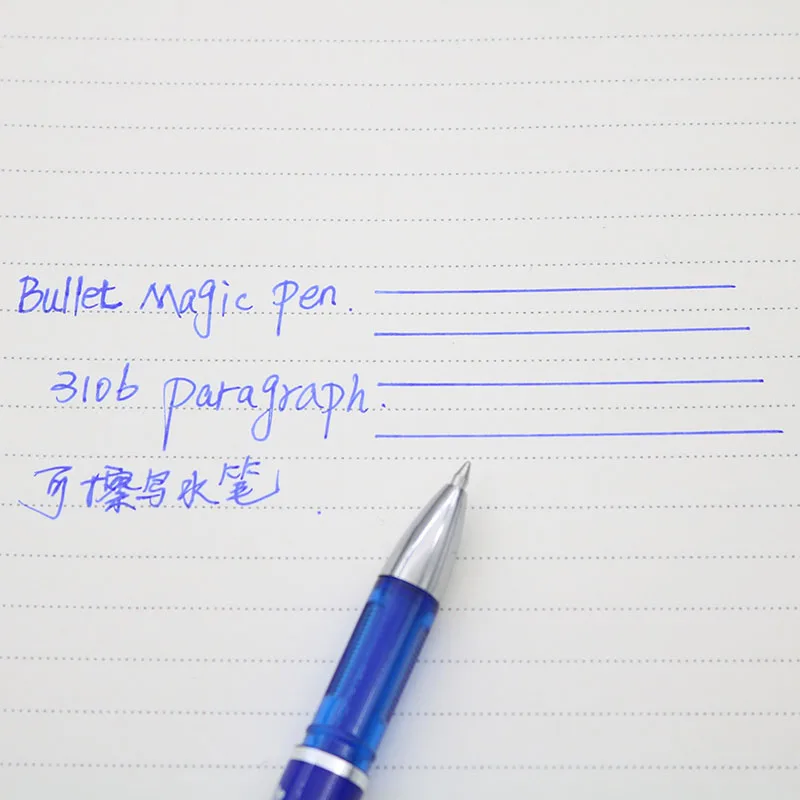 Bullet Magic pen.
310b paragraph.
可擦写水笔